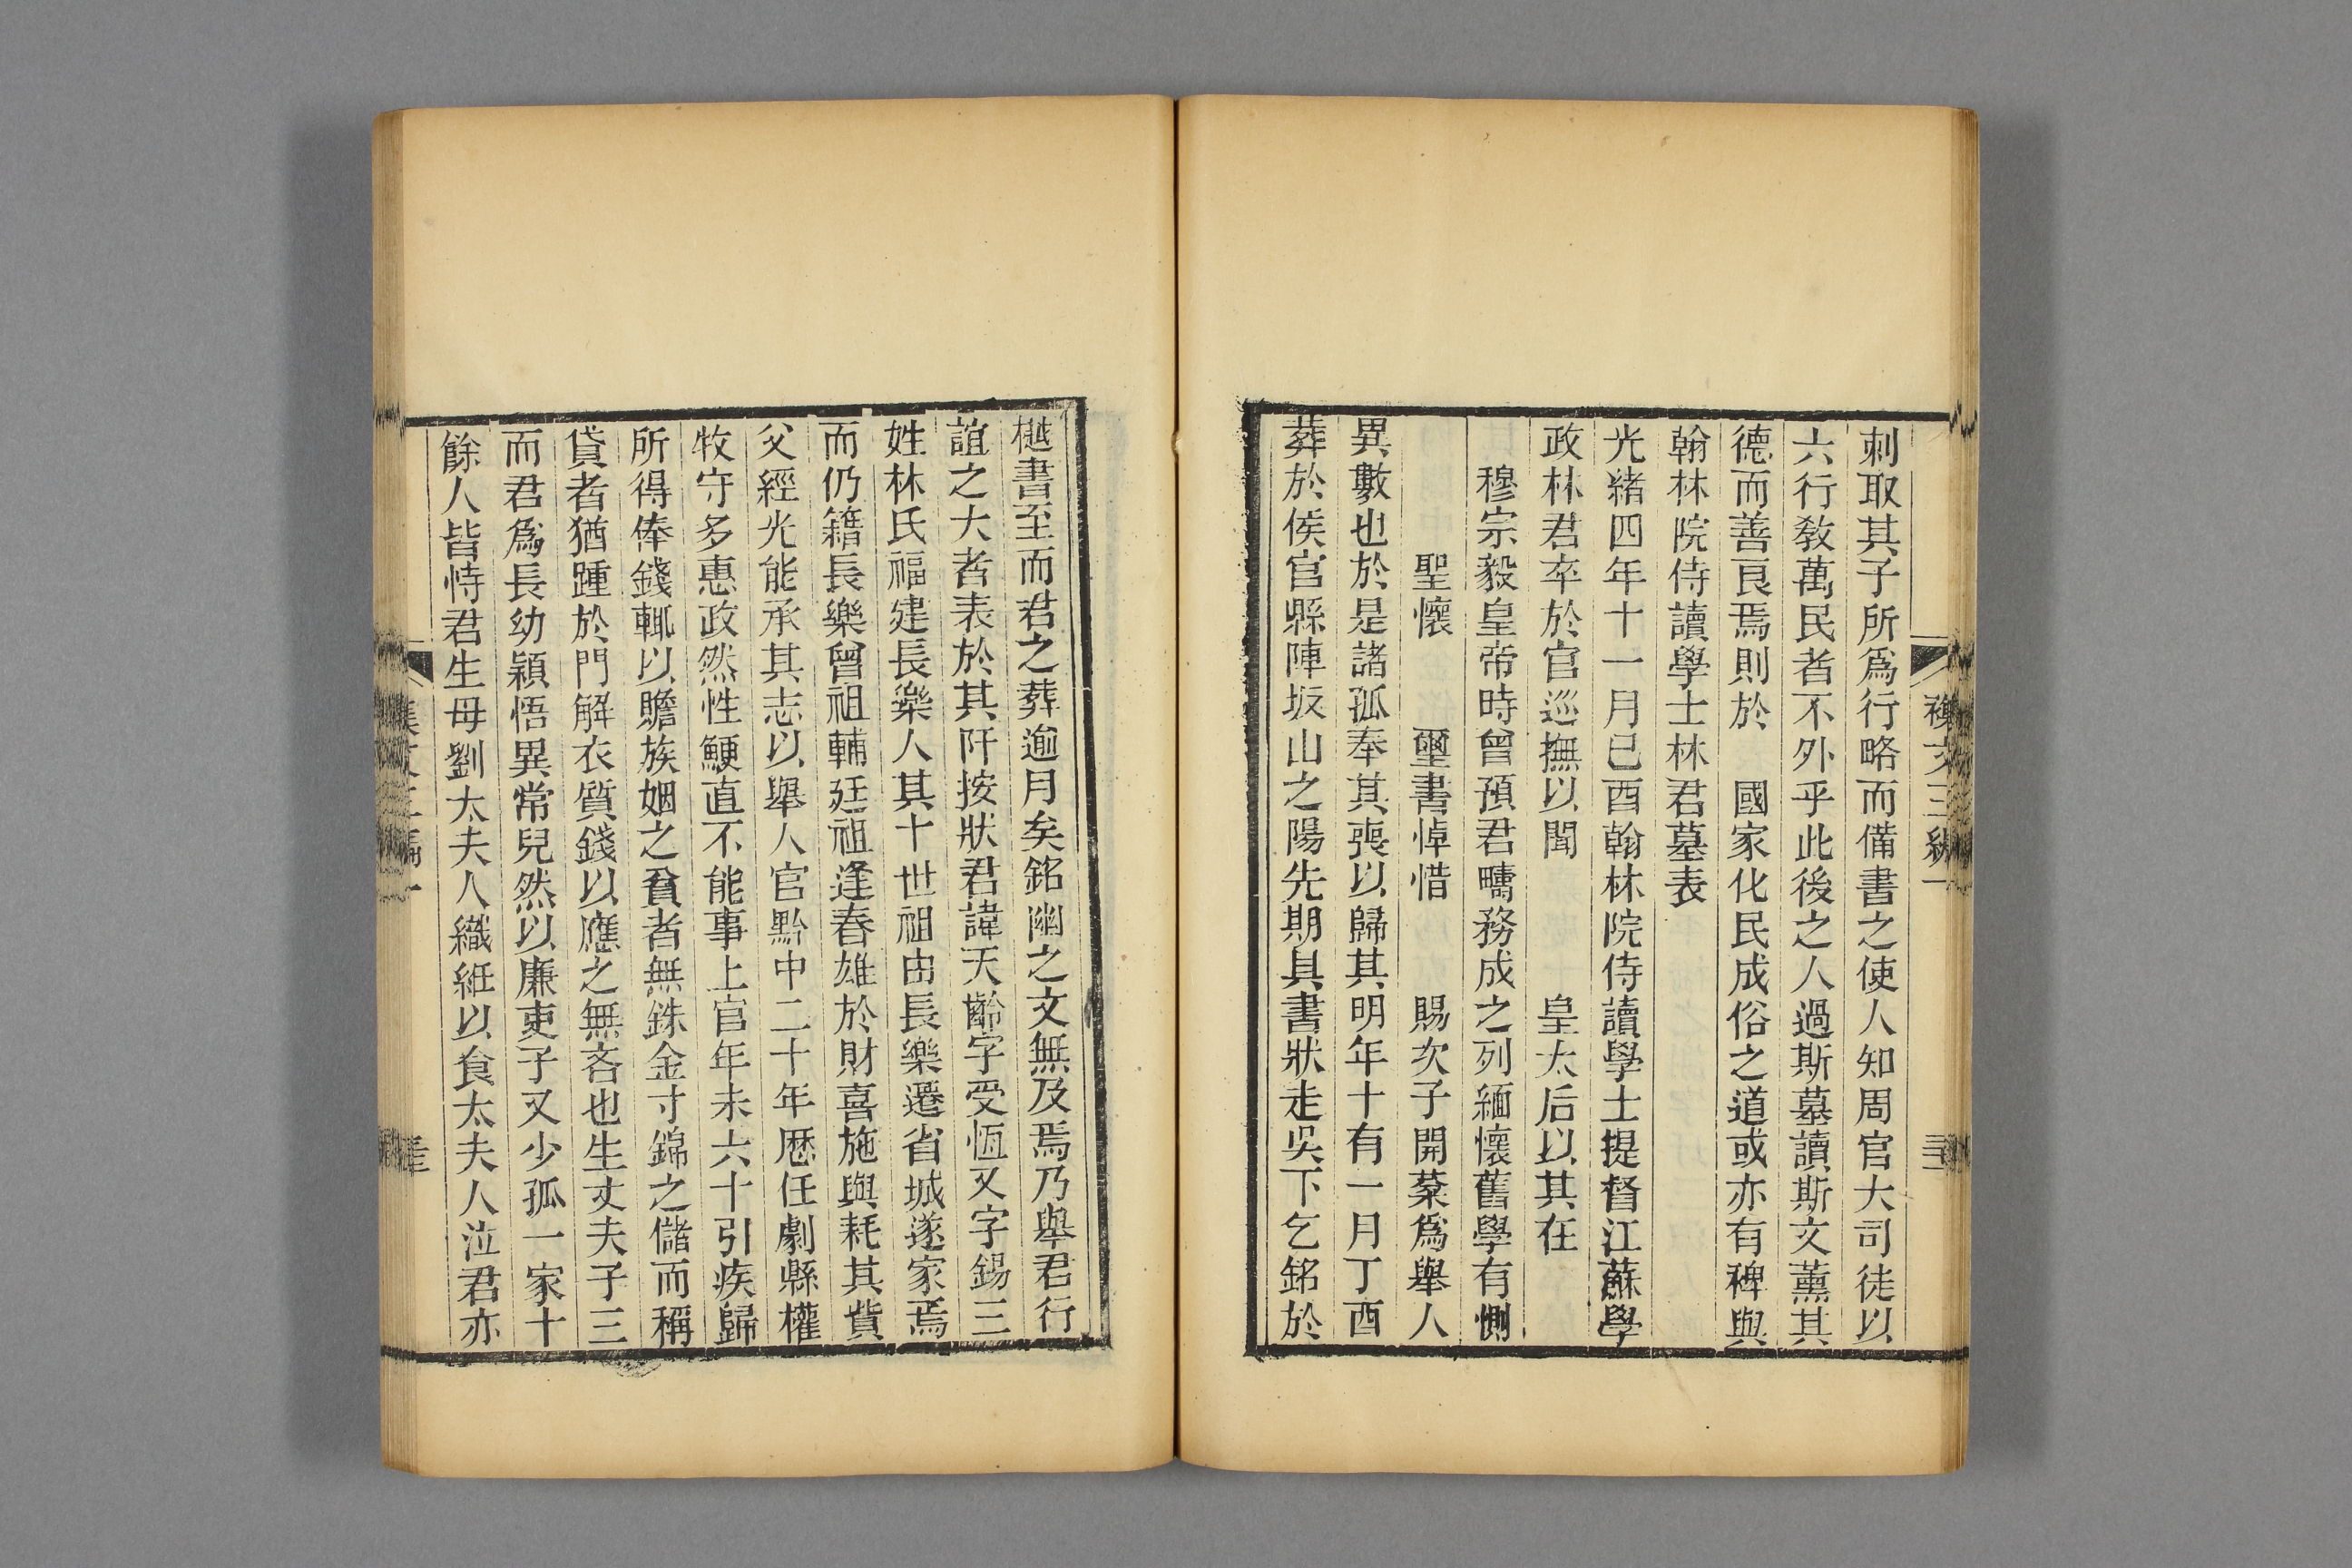 刺取其子所爲行略而備書之使人知周官大司徒以
六行敎萬民者不外乎此後之人過斯墓讀斯文薰其
德而善良焉則於　國家化民成俗之道或亦有裨與
翰林院侍讀學士林君墓表
光緒四年十一月己酉翰林院侍讀學士提督江蘇學
政林君卒於官巡撫以聞　皇太后以其在
穆宗毅皇帝時曾預君疇務成之列緬懷舊學有惻
聖懷　璽書悼惜　賜次子開棻爲舉人
異數也於是諸孤奉其喪以歸其明年十有一月丁酉
葬於侯官縣陣坂山之陽先期具書狀走吳下乞銘於
樾書至而君之葬逾月矣銘幽之文無及焉乃舉君行
誼之大者表於其阡按狀君諱天齡字受恆又字錫三
姓林氏福建長樂人其十世祖由長樂遷省城遂家焉
而仍籍長樂曾祖輔廷祖逢春雄於財喜施與耗其貲
父經光能承其志以舉人官黔中二十年歷任劇縣權
牧守多惠政然性鯁直不能事上官年未六十引疾歸
所得俸錢輒以贍族姻之貧者無銖金寸錦之儲而稱
貸者猶踵於門解衣質錢以應之無吝也生丈夫子三
而君爲長幼穎悟異常兒然以廉吏子又少孤一家十
餘人皆恃君生母劉太夫人織紝以食太夫人泣君亦